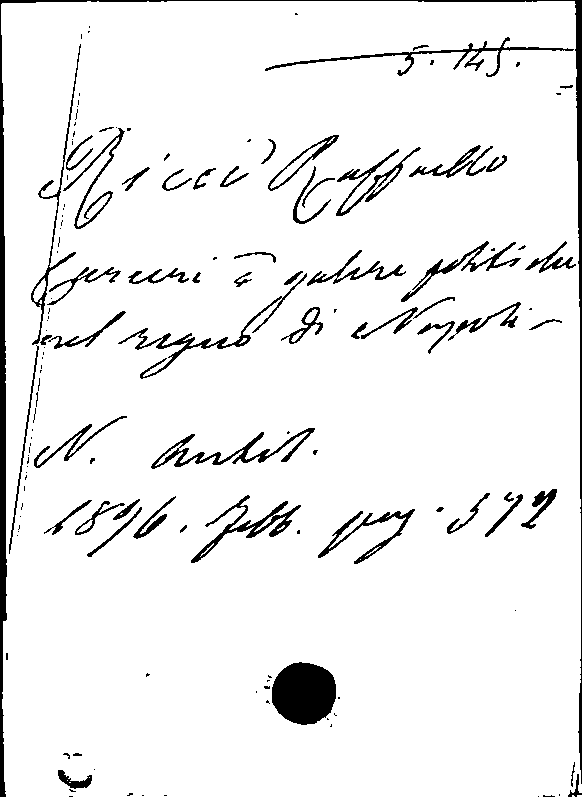 5. 145.
Ricci Raffaello
Carceri e galere politiche
nel regno di Napoli -
N. Antol.
1896. Febb. pag. 572